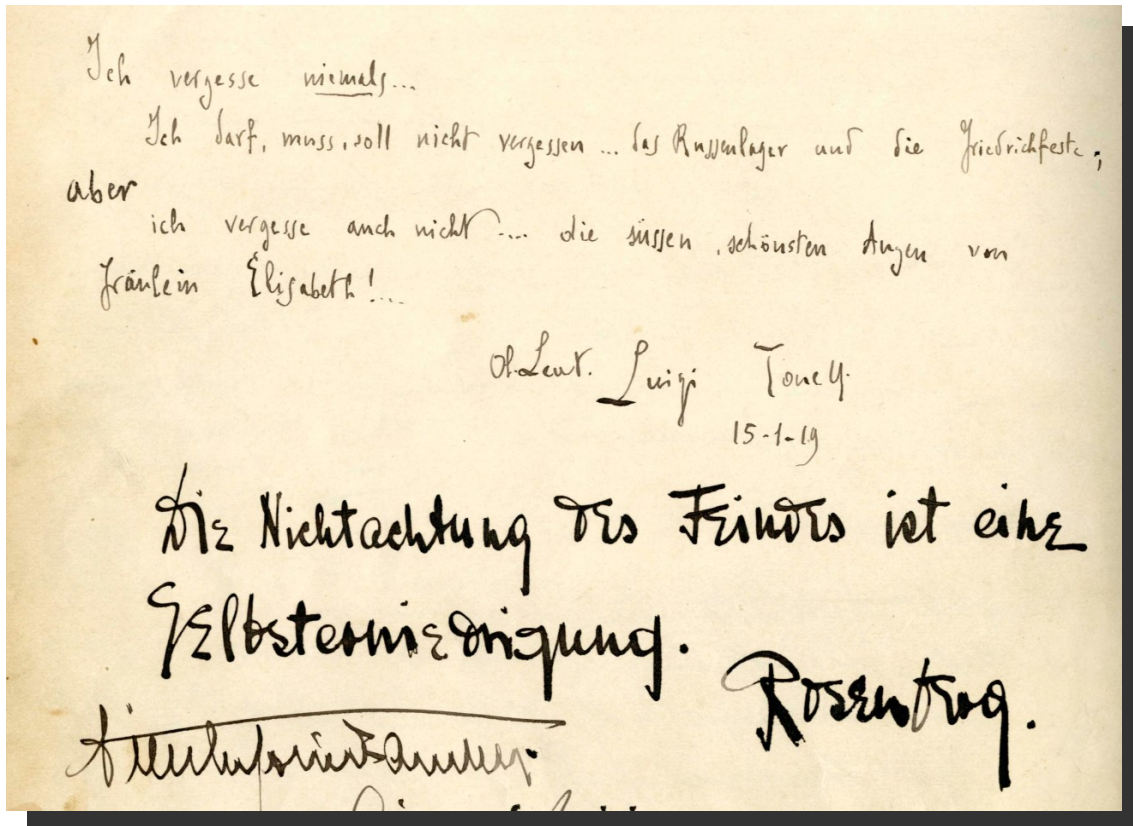 Ich vergesse niemals...
Ich darf, muss, soll nicht vergessen ... das Russenlager und die Friedrichfeste;
aber
ich vergesse auch nicht .... die süssen, schönsten Augen von
Fräulein Elisabeth!...
Ob.Leut. Luigi
15-1-19
Die Nichtachtung des Feindes ist eine
Selbsterniedrigung.